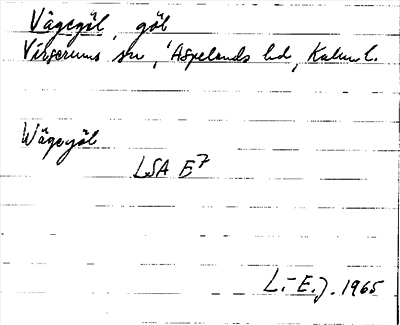 Vägegöl, göl
Virserums sn, Aspelands hd, Kalm l.
Wägegöl
LSA E7
L.-E.J. 1965